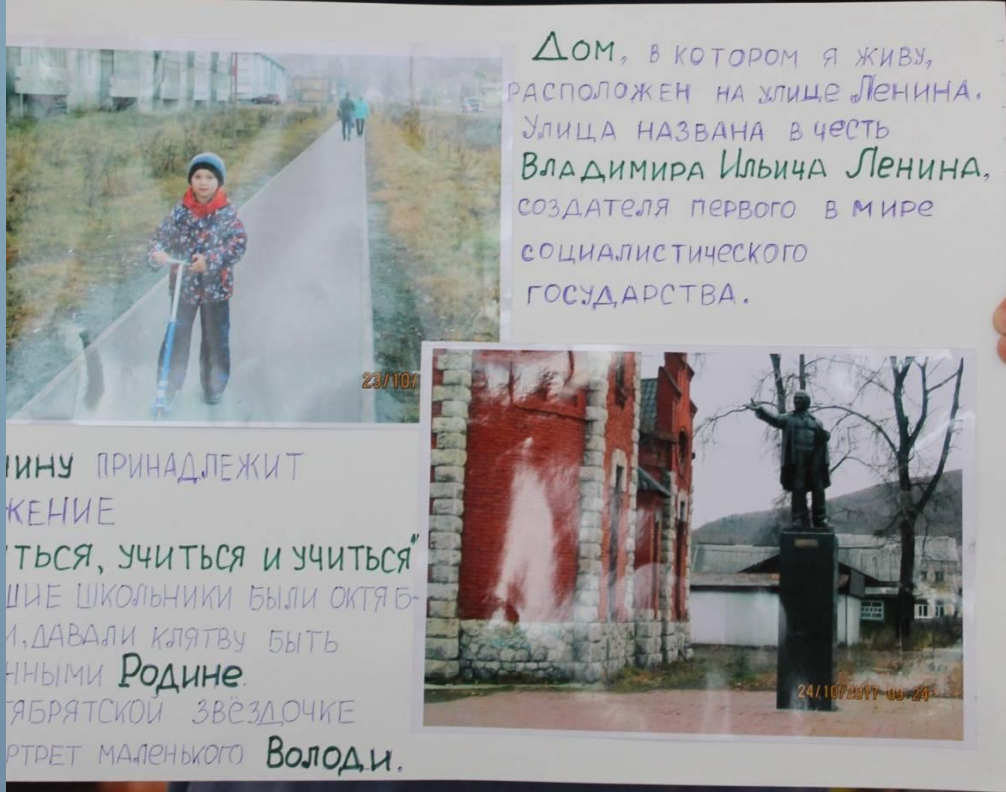 Дом, в котором я живу,
расположен на улице Ленина.
Улица названа в честь
Владимира Ильича Ленина,
создателя первого в мире
социалистического
государства.
23/10/
ину принадлежит
жение
ться, учиться и учиться"
шие школьники были октяб-
и, давали клятву быть
нными Родине.
тябрятской звёздочке
ртрет маленького Володи.
24/10/2017 09:24